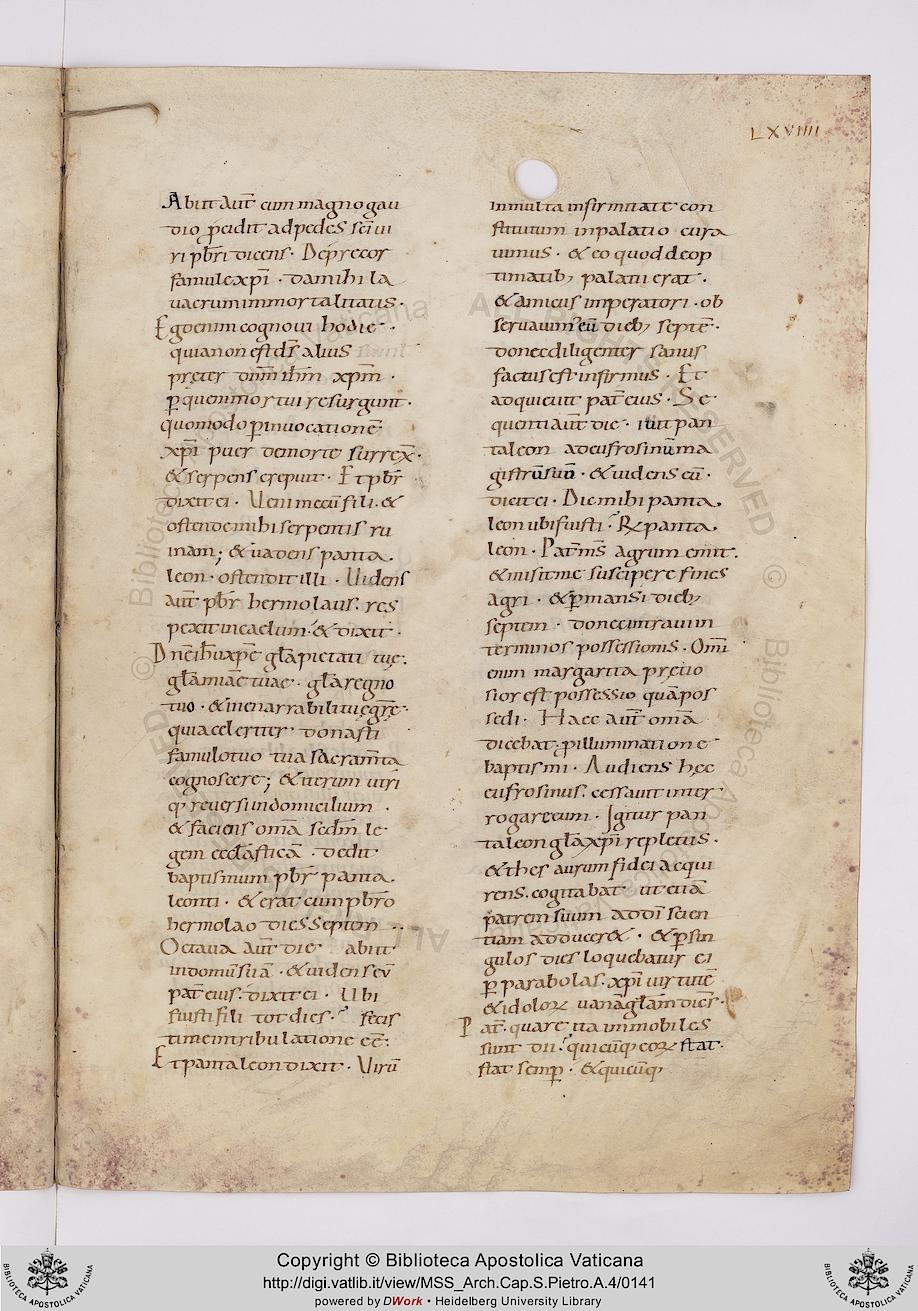 LXVIIII
Abiit aut̄ cum magno gau
dio p̱cidit ad pedes sc̄i ui
ri pb̄ri dicens · Deprecor
famule xp̄i · da mihi la
uacrum inmortalitatis ·
Ego enim cognoui hodie ·
quia non est ds̄ alius
preter dnm̄ ihm̄ xpm̄ ·
p̱ quem mortui resurgunt ·
quomodo p̱ inuocationē
xp̄i puer de morte surrex̄ ·
& serpens crepuit · Et pb̄r
dixit ei · Ueni mecū fili · &
ostende mihi serpentis ru
inam ; & uadens panta
leon · ostendit illi · Uidens
aut̄ pb̄r hermolaus · res
pexit in caelum · & dixit ·
Dn̄e ihū xp̄e gl̄a pietati tuę ·
gl̄a miae tuae · gl̄a regno
tuo · & inenarrabili tuę gr̄e ·
quia celeriter donasti
famulo tuo tua sacram̄ta
cognoscere ; & iterum utri
q; reuersi in domicilium ·
& faciens om̄a secdm̄ le
gem eccl̄asticā · dedit
baptismum pb̄r panta
leonti · & erat cum pb̄ro
hermolao dies septem ·
Octaua aut̄ die abiit
in domū suā · & uidens eū
pat̄ eius · dixit ei · Ubi
fuisti fili tot dies · fecis
ti me in tribulatione eē ·
Et pantaleon dixit · Uirū
in multa infirmitate con
stitutum in palatio cura
uimus · & eo quod de op
timatib; palatii erat ·
& amicus imperatori · ob
seruauim' eū dieb; septē ·
donec diligenter sanus
factus est infirmus · Et
adquieuit pat̄ eius · Se
quenti aut̄ die · iuit pan
taleon ad eufrosinum ma
gistrū suū · & uidens eū ·
dicit ei · Dic mihi panta
leon ubi fuisti · R̷ panta
leon · Pat̄ ms̄ agrum emit ·
& misit me suscipere fines
agri · & p̱mansi dieb;
septem · donec intraui in
terminos possessionis · Omī
enim margarita pretio
sior est possessio quā pos
sedi · Haec aut̄ om̄a
dicebat · p̱ illuminatione
baptismi · Audiens hec
eufrosinus · cessauit inter
rogare eum · Igitur pan
taleon gl̄a xp̄i repletus ·
& thesaurum fidei acqui
rens · cogitabat ut etiā
patrem suum ad dī scien
tiam adducer& · & p̱ sin
gulos dies loquebatur ei
p̱ parabolas · xp̄i uirtutē
& idoloꝝ uanā gl̄am dicēs ·
Pat̄ · quare ita immobiles
sunt dii · quicūq; eoꝝ stat ·
stat semp̱ · & quicūq;
Copyright © Biblioteca Apostolica Vaticana
http://digi.vatlib.it/view/MSS_Arch.Cap.S.Pietro.A.4/0141
powered by DWork • Heidelberg University Library
BIBLIOTECA APOSTOLICA VATICANA
BIBLIOTECA APOSTOLICA VATICANA